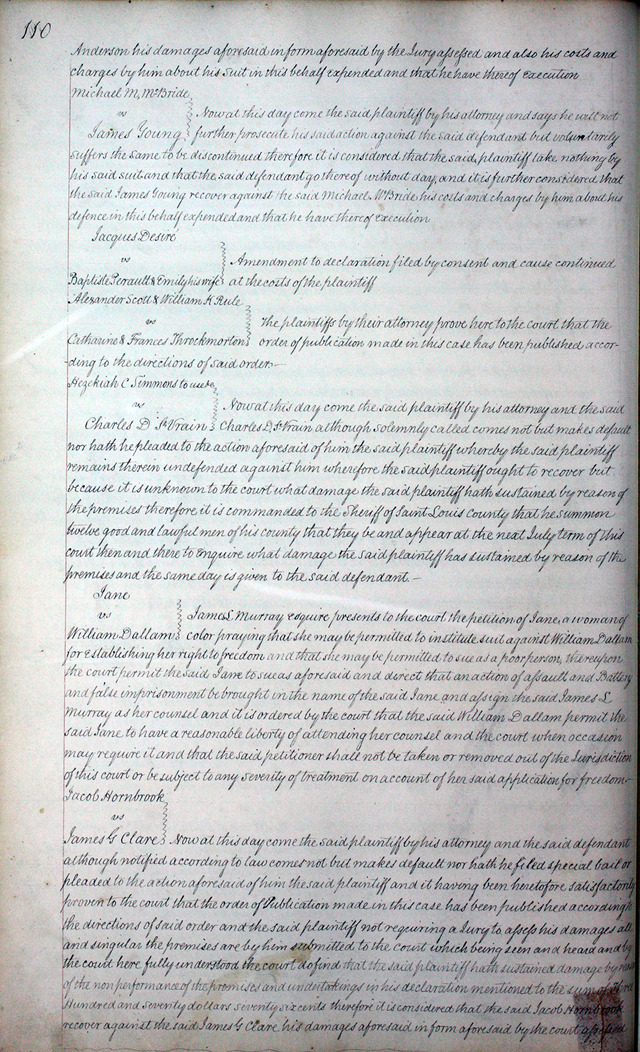 110
Anderson his damages aforesaid in form aforesaid by the Jury assessed and also his costs and
charges by him about his suit in this behalf expended and that he have thereof execution
Michael M, McBride
vs
Now at this day come the said plaintiff by his attorney and says he will not
James Young further prosecute his said action against the said defendant but voluntarily
suffers the same to be discontinued therefore it is considered that the said plaintiff take nothing by
his said suit and that the said defendant go thereof without day, and it is further considered that
the said James Young recover against the said Michael McBride his costs and charges by him about his
defence in this behalf expended and that he have thereof execution
Jacques Desire
vs
Amendment to declaration filed by consent and cause continued
Baptiste Perrault & Emily his wife at the costs of the plaintiff
Alexander Scott & William K Rule
vs
The plaintiffs by their attorney prove here to the court that the
Catharine & Frances Throckmorton order of publication made in this case has been published accor-
-ding to the directions of said order—
Hezekiah C Simmons to use &c
vs
Now at this day come the said plaintiff by his attorney and the said
Charles D. St Vrain Charles D, St Vrain although solemnly called comes not but makes default
nor hath he pleaded to the action aforesaid of him the said plaintiff whereby the said plaintiff
remains therein undefended against him wherefore the said plaintiff ought to recover but
because it is unknown to the court what damage the said plaintiff hath sustained by reason of
the premises therefore it is commanded to the Sheriff of Saint Louis county that he summon
twelve good and lawful men of his county that they be and appear at the next July term of this
court then and there to enquire what damage the said plaintiff has sustained by reason of the
premises and the same day is given to the said defendant.—
Jane
vs
James L Murray esquire presents to the court the petition of Jane, a woman of
William Dallam color praying that she may be permitted to institute suit against William Dallam
for establishing her right to freedom and that she may be permitted to sue as a poor person, thereupon
the court permit the said Jane to sue as aforesaid and direct that an action of assault and Battery
and false imprisonment be brought in the name of the said Jane and assign the said James L
Murray as her counsel and it is ordered by the court that the said William Dallam permit the
said Jane to have a reasonable liberty of attending her counsel and the court when occasion
may require it and that the said petitioner shall not be taken or removed out of the Jurisdiction
of this court or be subject to any severity of treatment on account of her said application for freedom—
Jacob Hornbrook
vs
James G Clare Now at this day come the said plaintiff by his attorney and the said defendant
although notified according to law comes not but makes default nor hath he filed special bail or
pleaded to the action aforesaid of him the said plaintiff and it having been heretofore satisfactorily
proven to the court that the order of Publication made in this case has been published according to
the directions of said order and the said plaintiff not requiring a Jury to assess his damages all
and singular the premises are by him submitted to the court which being seen and heard and by
the court here fully understood the court do find that the said plaintiff hath sustained damage by
of the non performance of the promises and undertakings in his declaration mentioned to the sum of
Hundred and seventy dollars seventy six cents therefore it is considered that the said Jacob Hornbrook
recover against the said James G Clare his damages aforesaid in form aforesaid by the court